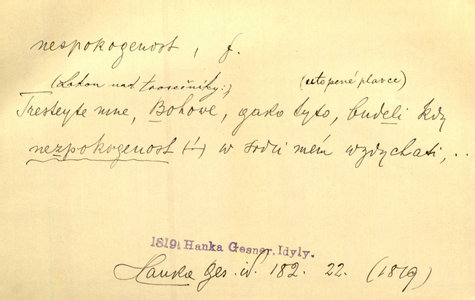 nespokogenost, f.
(Lakon nad trosečníky:) (utopené plavce)
Tresteyte mne, Bohové, gako tyto, budeli kdy
nezpokogenost (!) w srdci mém wzdychati,..
1819: Hanka Gesner. Idyly.
Hanka Ges. id. 182. 22. (1819)